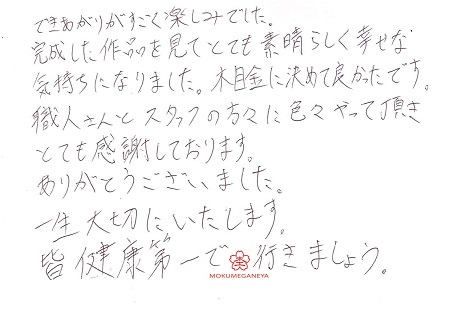 できあがりがすごく楽しみでした。
完成した作品を見てとても素晴らしく幸せな
気持ちになりました。木目金に決めて良かったです。
職人さんとスタッフの方々に色々やって頂き
とても感謝しております。
ありがとうございました。
一生大切にいたします。
皆健康第一で行きましょう。
MOKUMEGANEYA